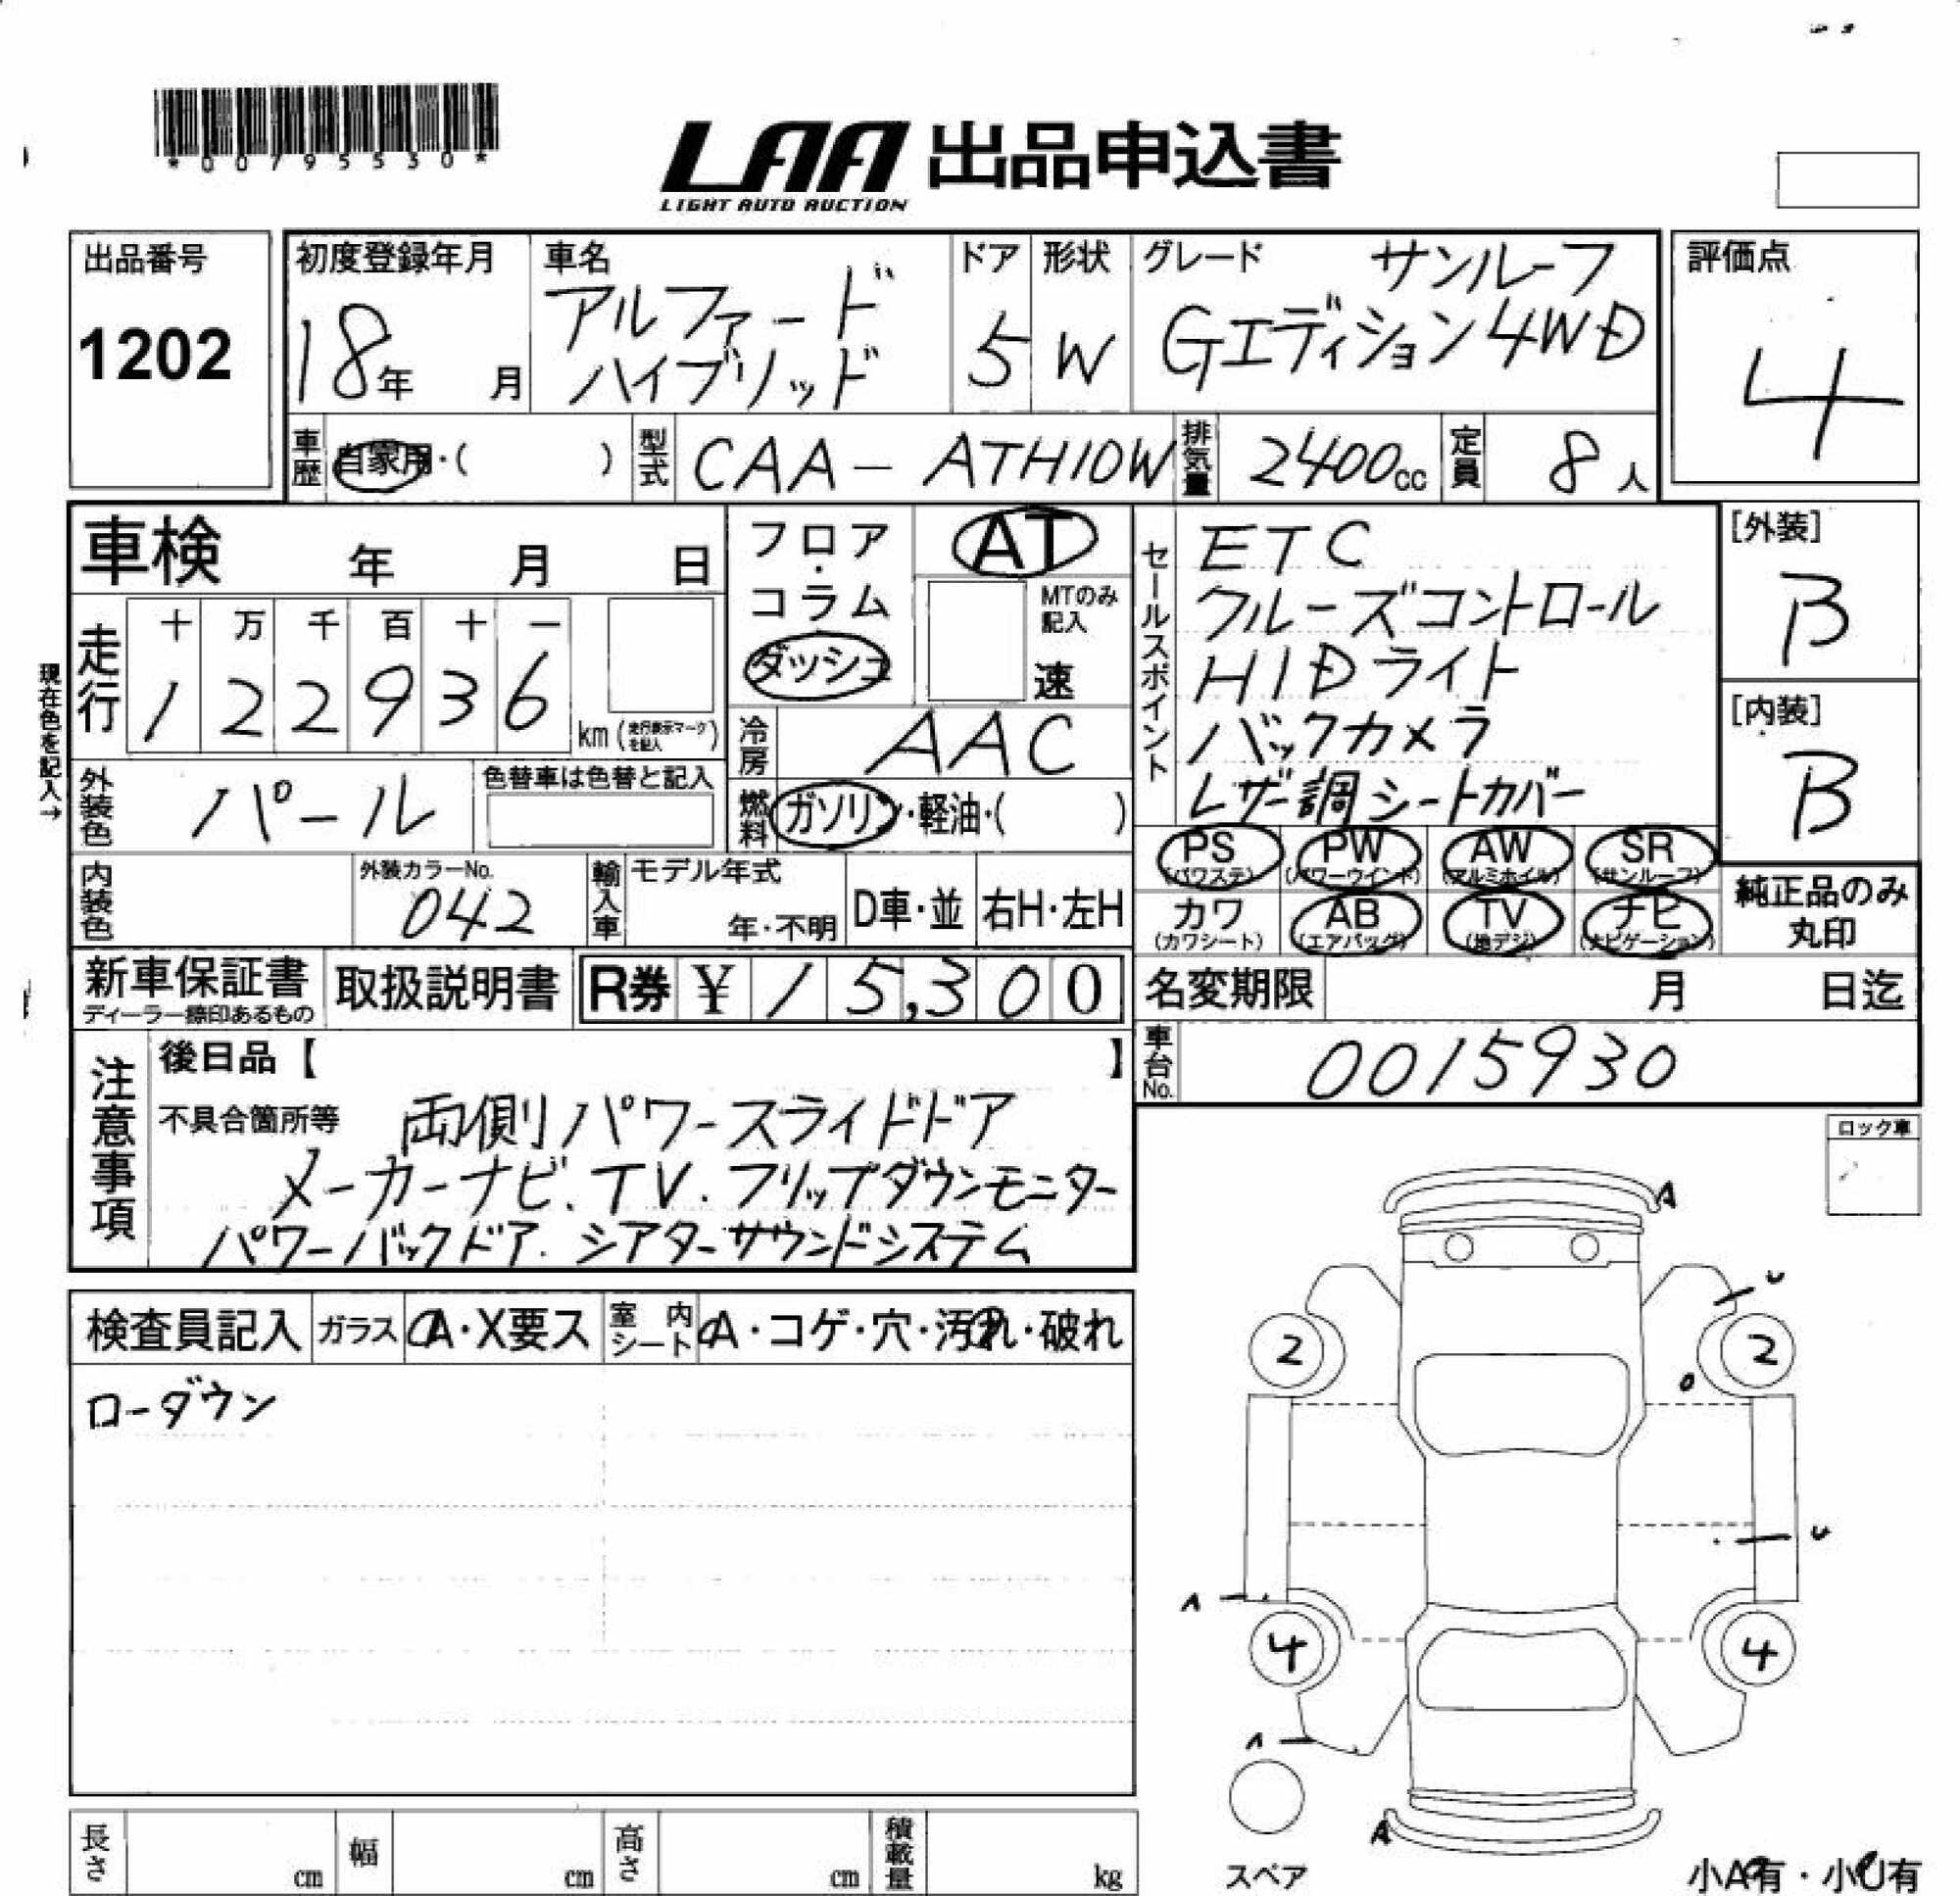 *00795530*
LAA 出品申込書
LIGHT AUTO AUCTION
出品番号
1202
初度登録年月
18年 月
車名
アルファード
ハイブリッド
ドア
5
形状
W
グレード サンルーフ
Gエディション4WD
評価点
4
車歴 自家用・( )
型式 CAA-ATH10W
排気量 2400cc
定員 8人
車検 年 月 日
現在色を記入→
走行 十 万 千 百 十 一
1 2 2 9 3 6 km (走行表示マークを記入)
フロア・コラム
ダッシュ
AT
MTのみ記入
速
冷房 AAC
燃料 ガソリン・軽油・( )
外装色 パール
色替車は色替と記入
内装色
外装カラーNo.
042
輸入車 モデル年式
年・不明
D車・並
右H・左H
セールスポイント
ETC
クルーズコントロール
HIDライト
バックカメラ
レザー調シートカバー
[外装]
B
[内装]
B
PS (パワステ)
PW (パワーウインド)
AW (アルミホイル)
SR (サンルーフ)
カワ (カワシート)
AB (エアバッグ)
TV (地デジ)
ナビ (ナビゲーション)
純正品のみ
丸印
新車保証書
ディーラー捺印あるもの
取扱説明書
R券 ¥ 15,300
名変期限 月 日迄
車台No. 0015930
注意事項
後日品【 】
不具合箇所等 両側パワースライドドア
メーカーナビ.TV.フリップダウンモニター
パワーバックドア.シアターサウンドシステム
ロック車
検査員記入 ガラス A・X要ス 室内シート A・コゲ・穴・汚れ・破れ
ローダウン
A
U
2
2
U
A
4
4
A
A
スペア
小A有・小U有
長さ cm
幅 cm
高さ cm
積載量 kg